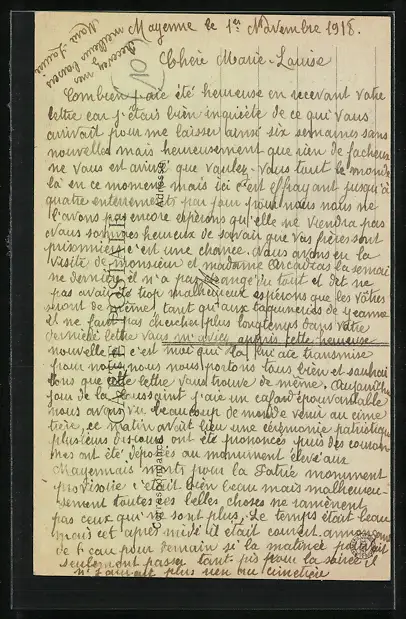 Mayenne le 1er Novembre 1918.
Recevez nos
meilleurs baisers
Marie Louise
(10)
Chère Marie-Louise
Combien j'aie été heureuse en recevant votre
lettre car j'étais bien inquiète de ce qui vous
arrivait pour me laisser ainsi six semaines sans
nouvelles mais heureusement que rien de facheux
ne vous est arrivé que voulez-vous tout le monde
là en ce moment mais ici c'est effrayant jusqu'à
quatre enterrements par jour pour nous nous ne
l'avons pas encore espérons qu'elle ne viendra pas
Nous sommes heureux de savoir que vos frères sont
prisonniers c'est une chance. Nous avons eu la
visite de monsieur et madame la semai
ne dernière il n'a pas changé du tout et dit ne
pas avoir été trop malheureux espérons que les vôtres
seront de même, tant qu'aux taquineries de Jeanne
il ne faut pas chercher plus longtemps dans votre
dernière lettre vous m'aviez appris cette heureuse
nouvelle et c'est moi qui la lui aie transmise
pour nous nous nous portons tous bien et souhai
tons que cette lettre vous trouve de même. Aujourd'hui
jour de la Toussaint j'aie un cafard épouvantable
nous avons vu beaucoup de monde venir au cime
tière, ce matin avait lieu une cérémonie patriotique
plusieurs discours ont été prononcés puis des couron
nes ont été déposées au monument élevé aux
Mayennais morts pour la Patrie monument
provisoire c'était bien beau mais malheureu-
sement toutes ces belles choses ne ramènent
pas ceux qui ne sont plus, Le temps était beau
mais cet après midi il était couvert annonçons
de l'eau pour demain si la matinée pouvait
seulement passer tant pis pour la soirée il
n'y aurait plus rien au cimetière
Adresse
Correspondance